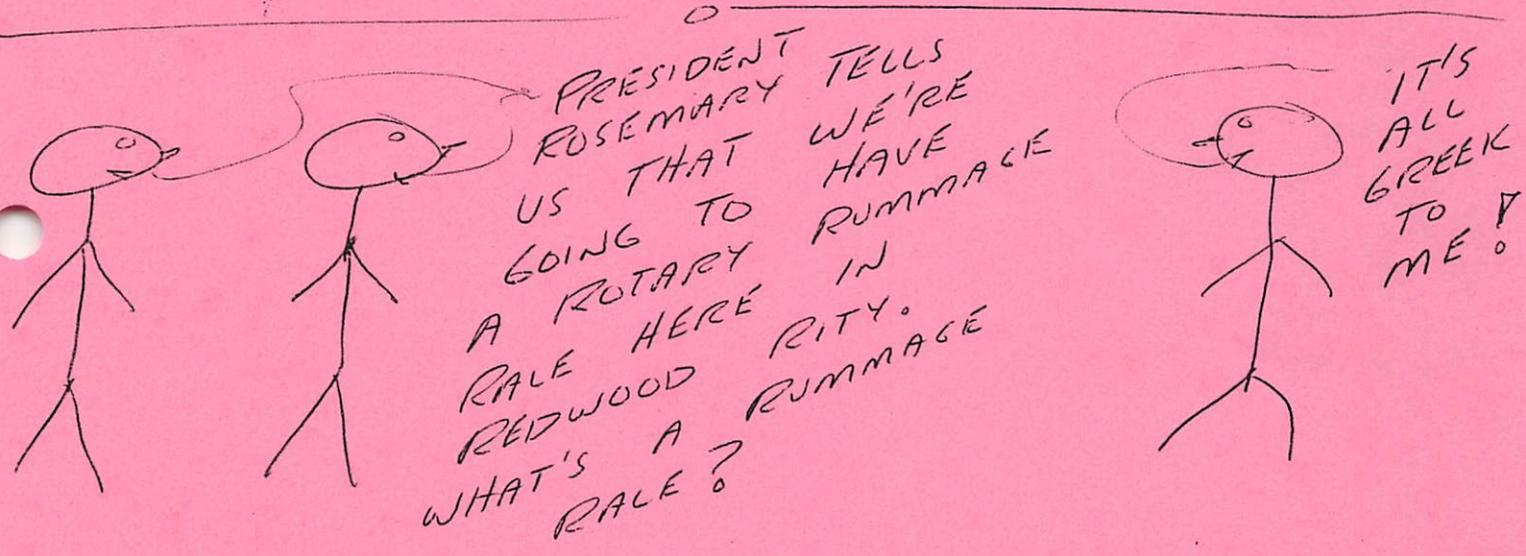 PRESIDENT
ROSEMARY TELLS
US THAT WE'RE
GOING TO HAVE
A ROTARY RUMMAGE
RALE HERE IN
REDWOOD RITY.
WHAT'S A RUMMAGE
RALE?
IT'S
ALL
GREEK
TO
ME!